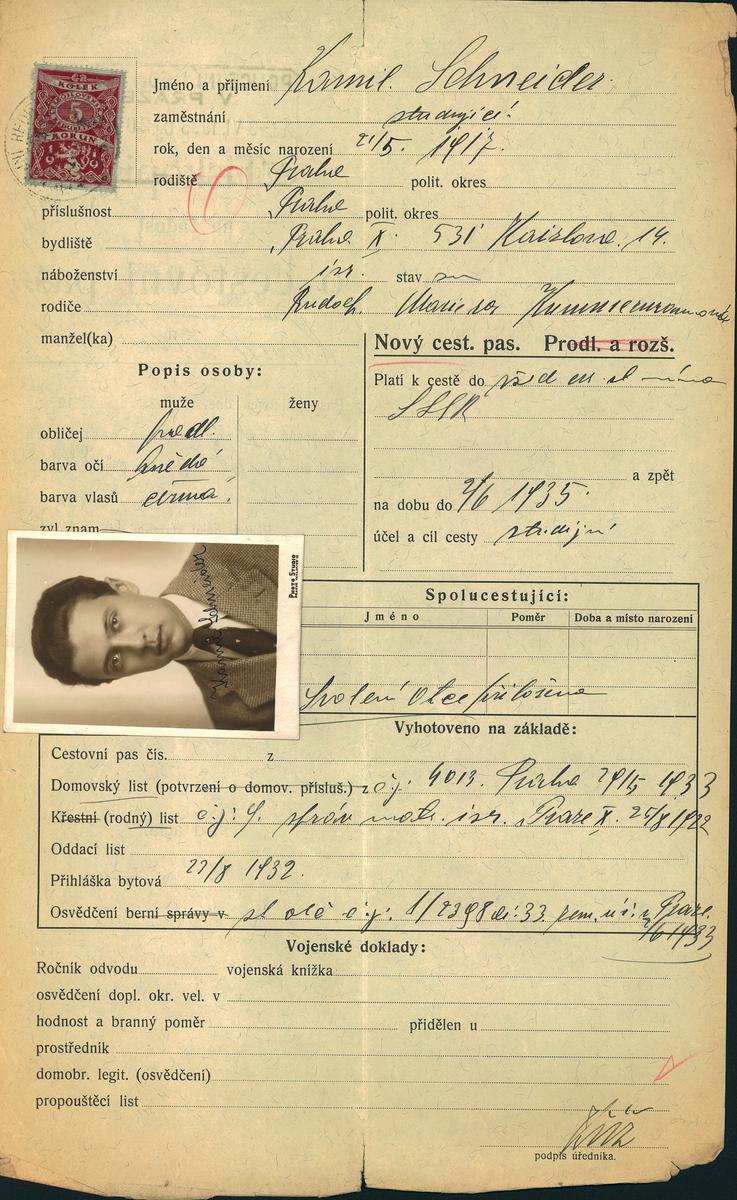 KOLEK
5
KORUN
Jméno a příjmení Kamil Schneider
zaměstnání studující
rok, den a měsíc narození 21/5. 1917.
rodiště Praha polit. okres
příslušnost Praha polit. okres
bydliště Praha X. 531 Kaizlova 14.
náboženství isr. stav
rodiče Rudolf. Marie
manžel(ka)
Nový cest. pas. Prodl. a rozš.
Popis osoby:
muže ženy
Platí k cestě do
obličej podl.
barva očí hnědé
a zpět
barva vlasů černá
na dobu do 2/6 1935.
zvl. znam.
účel a cíl cesty studijní
Photo Studio
Kamil Schneider
Spolucestující:
Jméno Poměr Doba a místo narození
Svolení otce přiloženo
Vyhotoveno na základě:
Cestovní pas čís. z
Domovský list (potvrzení o domov. přísluš.) z čj. 4013. Praha 29/5 1933
Křestní (rodný) list čj: 9. správ mat. isr. Praze X. 25/8 1922
Oddací list
Přihláška bytová 22/8 1932.
Osvědčení berní správy v čj: 33. Praze.
1/6 1933
Vojenské doklady:
Ročník odvodu vojenská knížka
osvědčení dopl. okr. vel. v
hodnost a branný poměr přidělen u
prostředník
domobr. legit. (osvědčení)
propouštěcí list
podpis úředníka.